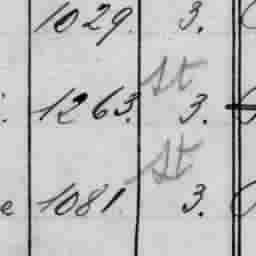 1029. 3.
st
1263. 3.
st
e 1081. 3.